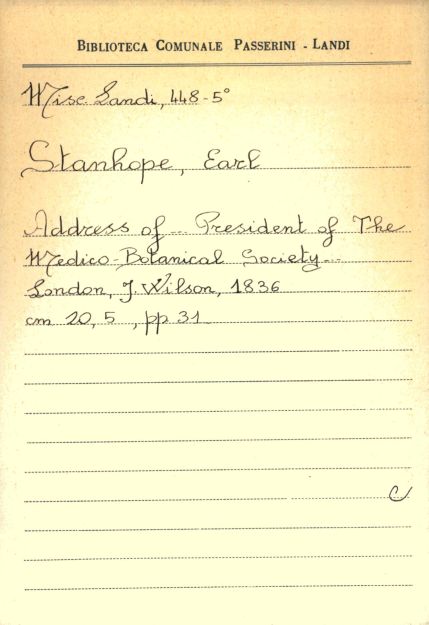 BIBLIOTECA COMUNALE PASSERINI - LANDI
Misc. Landi, 448-5°
Stanhope, Earl
Address of... President of The
Medico-Botanical Society...
London, J. Wilson, 1836
cm 20,5 , pp 31
C